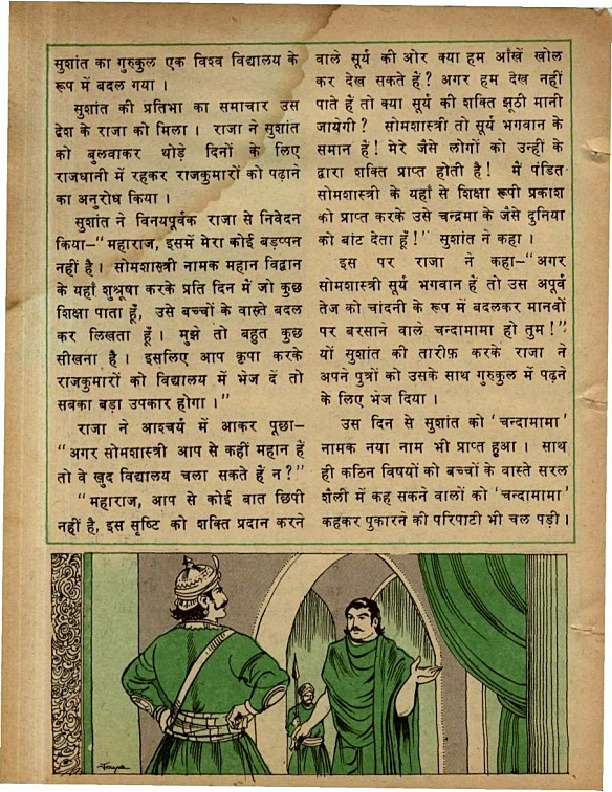 सुशांत का गुरुकुल एक विश्व विद्यालय के
रूप में बदल गया ।
सुशांत की प्रतिभा का समाचार उस
देश के राजा को मिला । राजा ने सुशांत
को बुलवाकर थोड़े दिनों के लिए
राजधानी में रहकर राजकुमारों को पढ़ाने
का अनुरोध किया ।
सुशांत ने विनयपूर्वक राजा से निवेदन
किया-“महाराज, इसमें मेरा कोई बड़प्पन
नहीं है । सोमशास्त्री नामक महान विद्वान
के यहाँ शुश्रूषा करके प्रति दिन में जो कुछ
शिक्षा पाता हूँ, उसे बच्चों के वास्ते बदल
कर लिखता हूँ । मुझे तो बहुत कुछ
सीखना है । इसलिए आप कृपा करके
राजकुमारों को विद्यालय में भेज दें तो
सबका बड़ा उपकार होगा ।”
राजा ने आश्चर्य में आकर पूछा-
“अगर सोमशास्त्री आप से कहीं महान हैं
तो वे खुद विद्यालय चला सकते हैं न ?”
“महाराज, आप से कोई बात छिपी
नहीं है, इस सृष्टि को शक्ति प्रदान करने
वाले सूर्य की ओर क्या हम आँखें खोल
कर देख सकते हैं ? अगर हम देख नहीं
पाते हैं तो क्या सूर्य की शक्ति झूठी मानी
जायेगी ? सोमशास्त्री तो सूर्य भगवान के
समान हैं ! मेरे जैसे लोगों को उन्हीं के
द्वारा शक्ति प्राप्त होती है ! में पंडित
सोमशास्त्री के यहाँ से शिक्षा रूपी प्रकाश
को प्राप्त करके उसे चन्द्रमा के जैसे दुनिया
को बांट देता हूँ !” सुशांत ने कहा ।
इस पर राजा ने कहा-“अगर
सोमशास्त्री सूर्य भगवान हैं तो उस अपूर्व
तेज को चांदनी के रूप में बदलकर मानवों
पर बरसाने वाले चन्दामामा हो तुम !”
यों सुशांत की तारीफ़ करके राजा ने
अपने पुत्रों को उसके साथ गुरुकुल में पढ़ने
के लिए भेज दिया ।
उस दिन से सुशांत को ‘चन्दामामा’
नामक नया नाम भी प्राप्त हुआ । साथ
ही कठिन विषयों को बच्चों के वास्ते सरल
शैली में कह सकने वालों को ‘चन्दामामा’
कहकर पुकारने की परिपाटी भी चल पड़ी ।